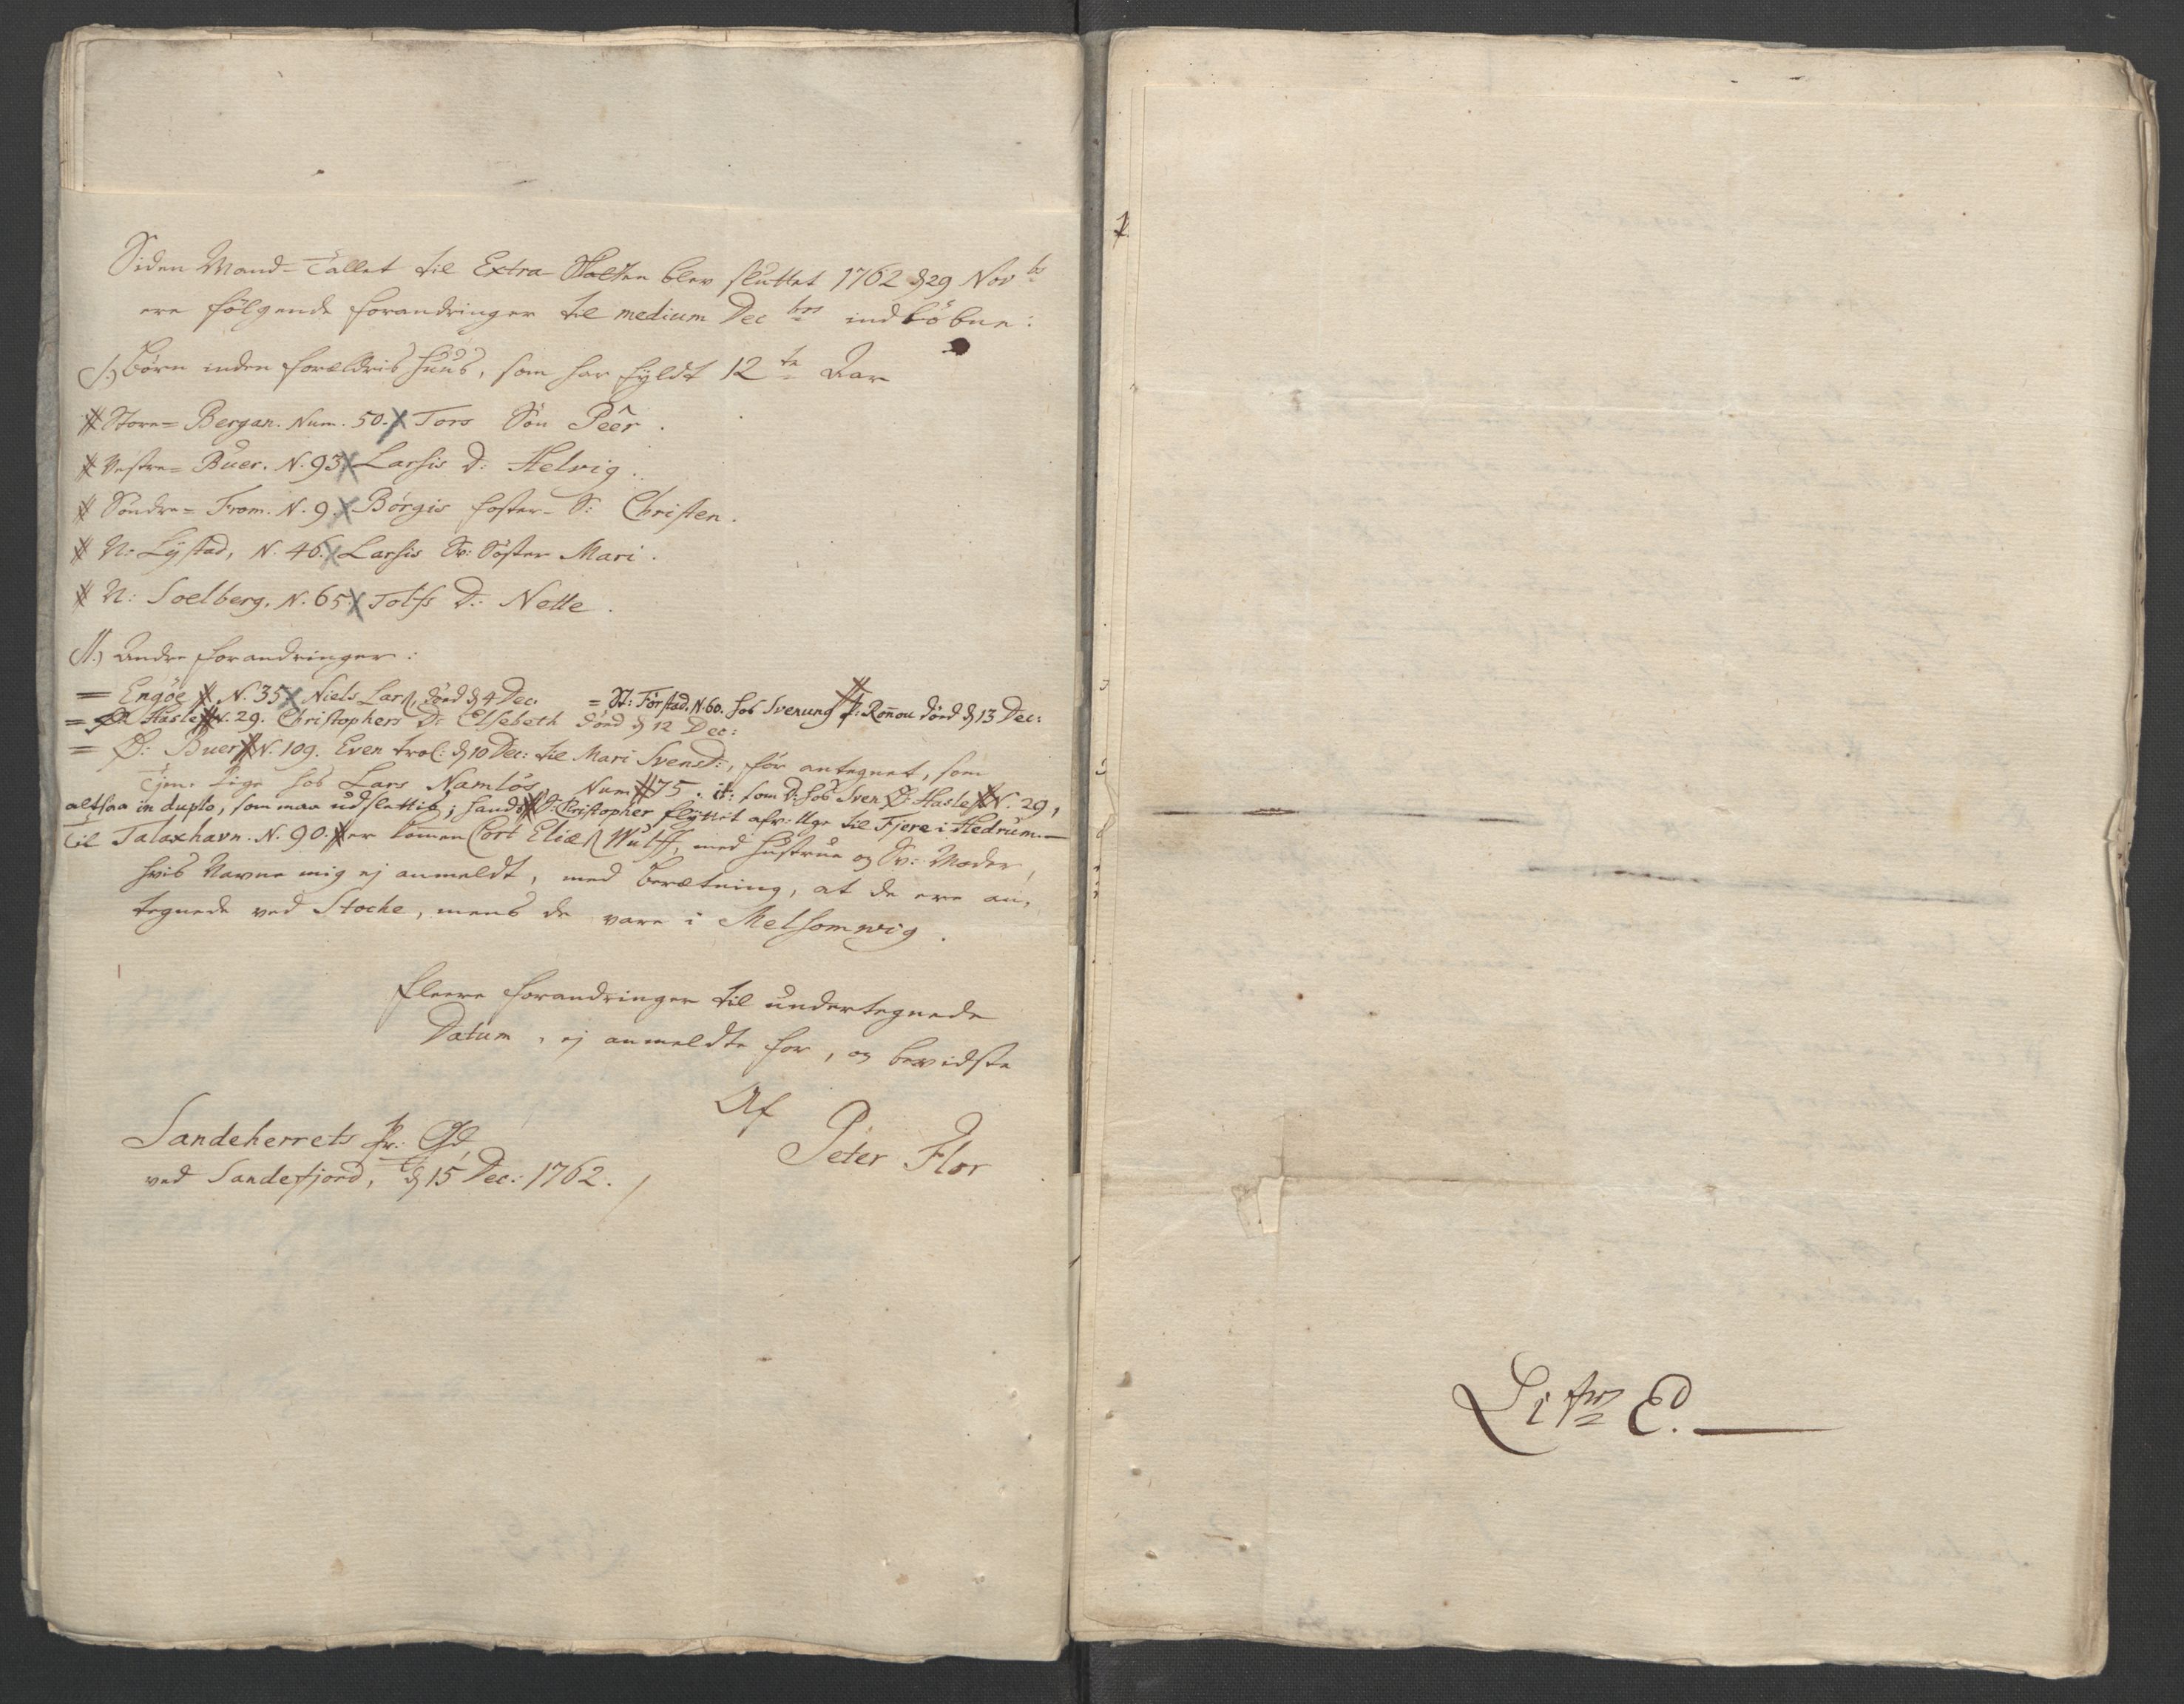 Siden Mand-Tallet til Extra-Skatten blev sluttet 1762 d 29 Novbr
ere følgende forandringer til medium Decbris indløbne:
I.) Børn inden forældris huus, som har fyldt 12te Aar
Store= Bergan. Num. 50. Tors Søn Peêr.
Vestre= Buer. N. 93. Larsis D: Helvig.
Søndre= From. N. 9. Börgis foster-S: Christen.
N: Lystad, N. 46. Larsis Sv: Søster Mari.
N: Soelberg, N. 65. Tolfs D: Nette.
II.) Andre forandringer:
= Engöe N. 35. Niels Lars., död d 4 Dec. = St: Förstad. N. 60. hos Svenung P: Roñou död d 13 Dec:
= Hasle N. 29. Christophers D: Elsebeth död d 12 Dec:
= Ø: Buer N. 109. Even trol: d 10 Dec: til Mari Svensd:, før antegnet, som
Tjen: Pige hos Lars Namlös Num 75. it: som D: hos Sven Ø: Hasle N. 29,
altsaa in duplo, som maa udslettis; hands D: Christopher flyttet afv: Uge til Fjere i Hedrum.—
Til Talaxhavn. N. 90. er kom̄en Cort Eliæs. Wulff, med hustrue og Sv: Moder,
hvis Navne mig ej anmeldt, med beretning, at de ere an-
tegnede ved Stocke, mens de vare i Melsomvig.
fleere forandringer til undertegnede
Datum, ej anmeldte for, og bevidste
Af
Peter Flor
Sandeherrets Pr: Gd,
ved Sandefjord, d 15 Dec: 1762.
Litr E.